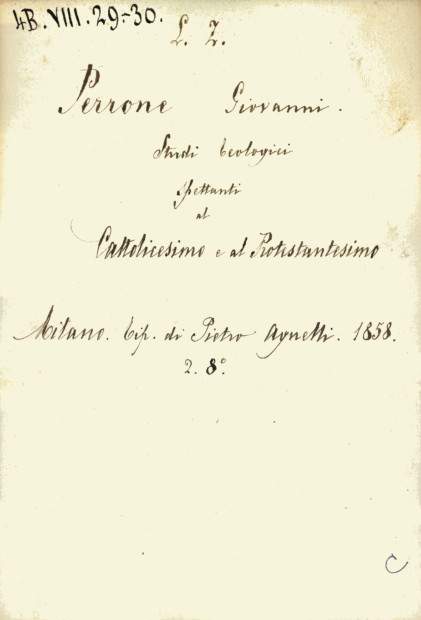 4B.VIII.29-30.
L. Z.
Perrone Giovanni.
Studi teologici
spettanti
al
Cattolicesimo e al Protestantesimo
Milano. Tip. di Pietro Agnelli. 1858.
2. 8°.
C